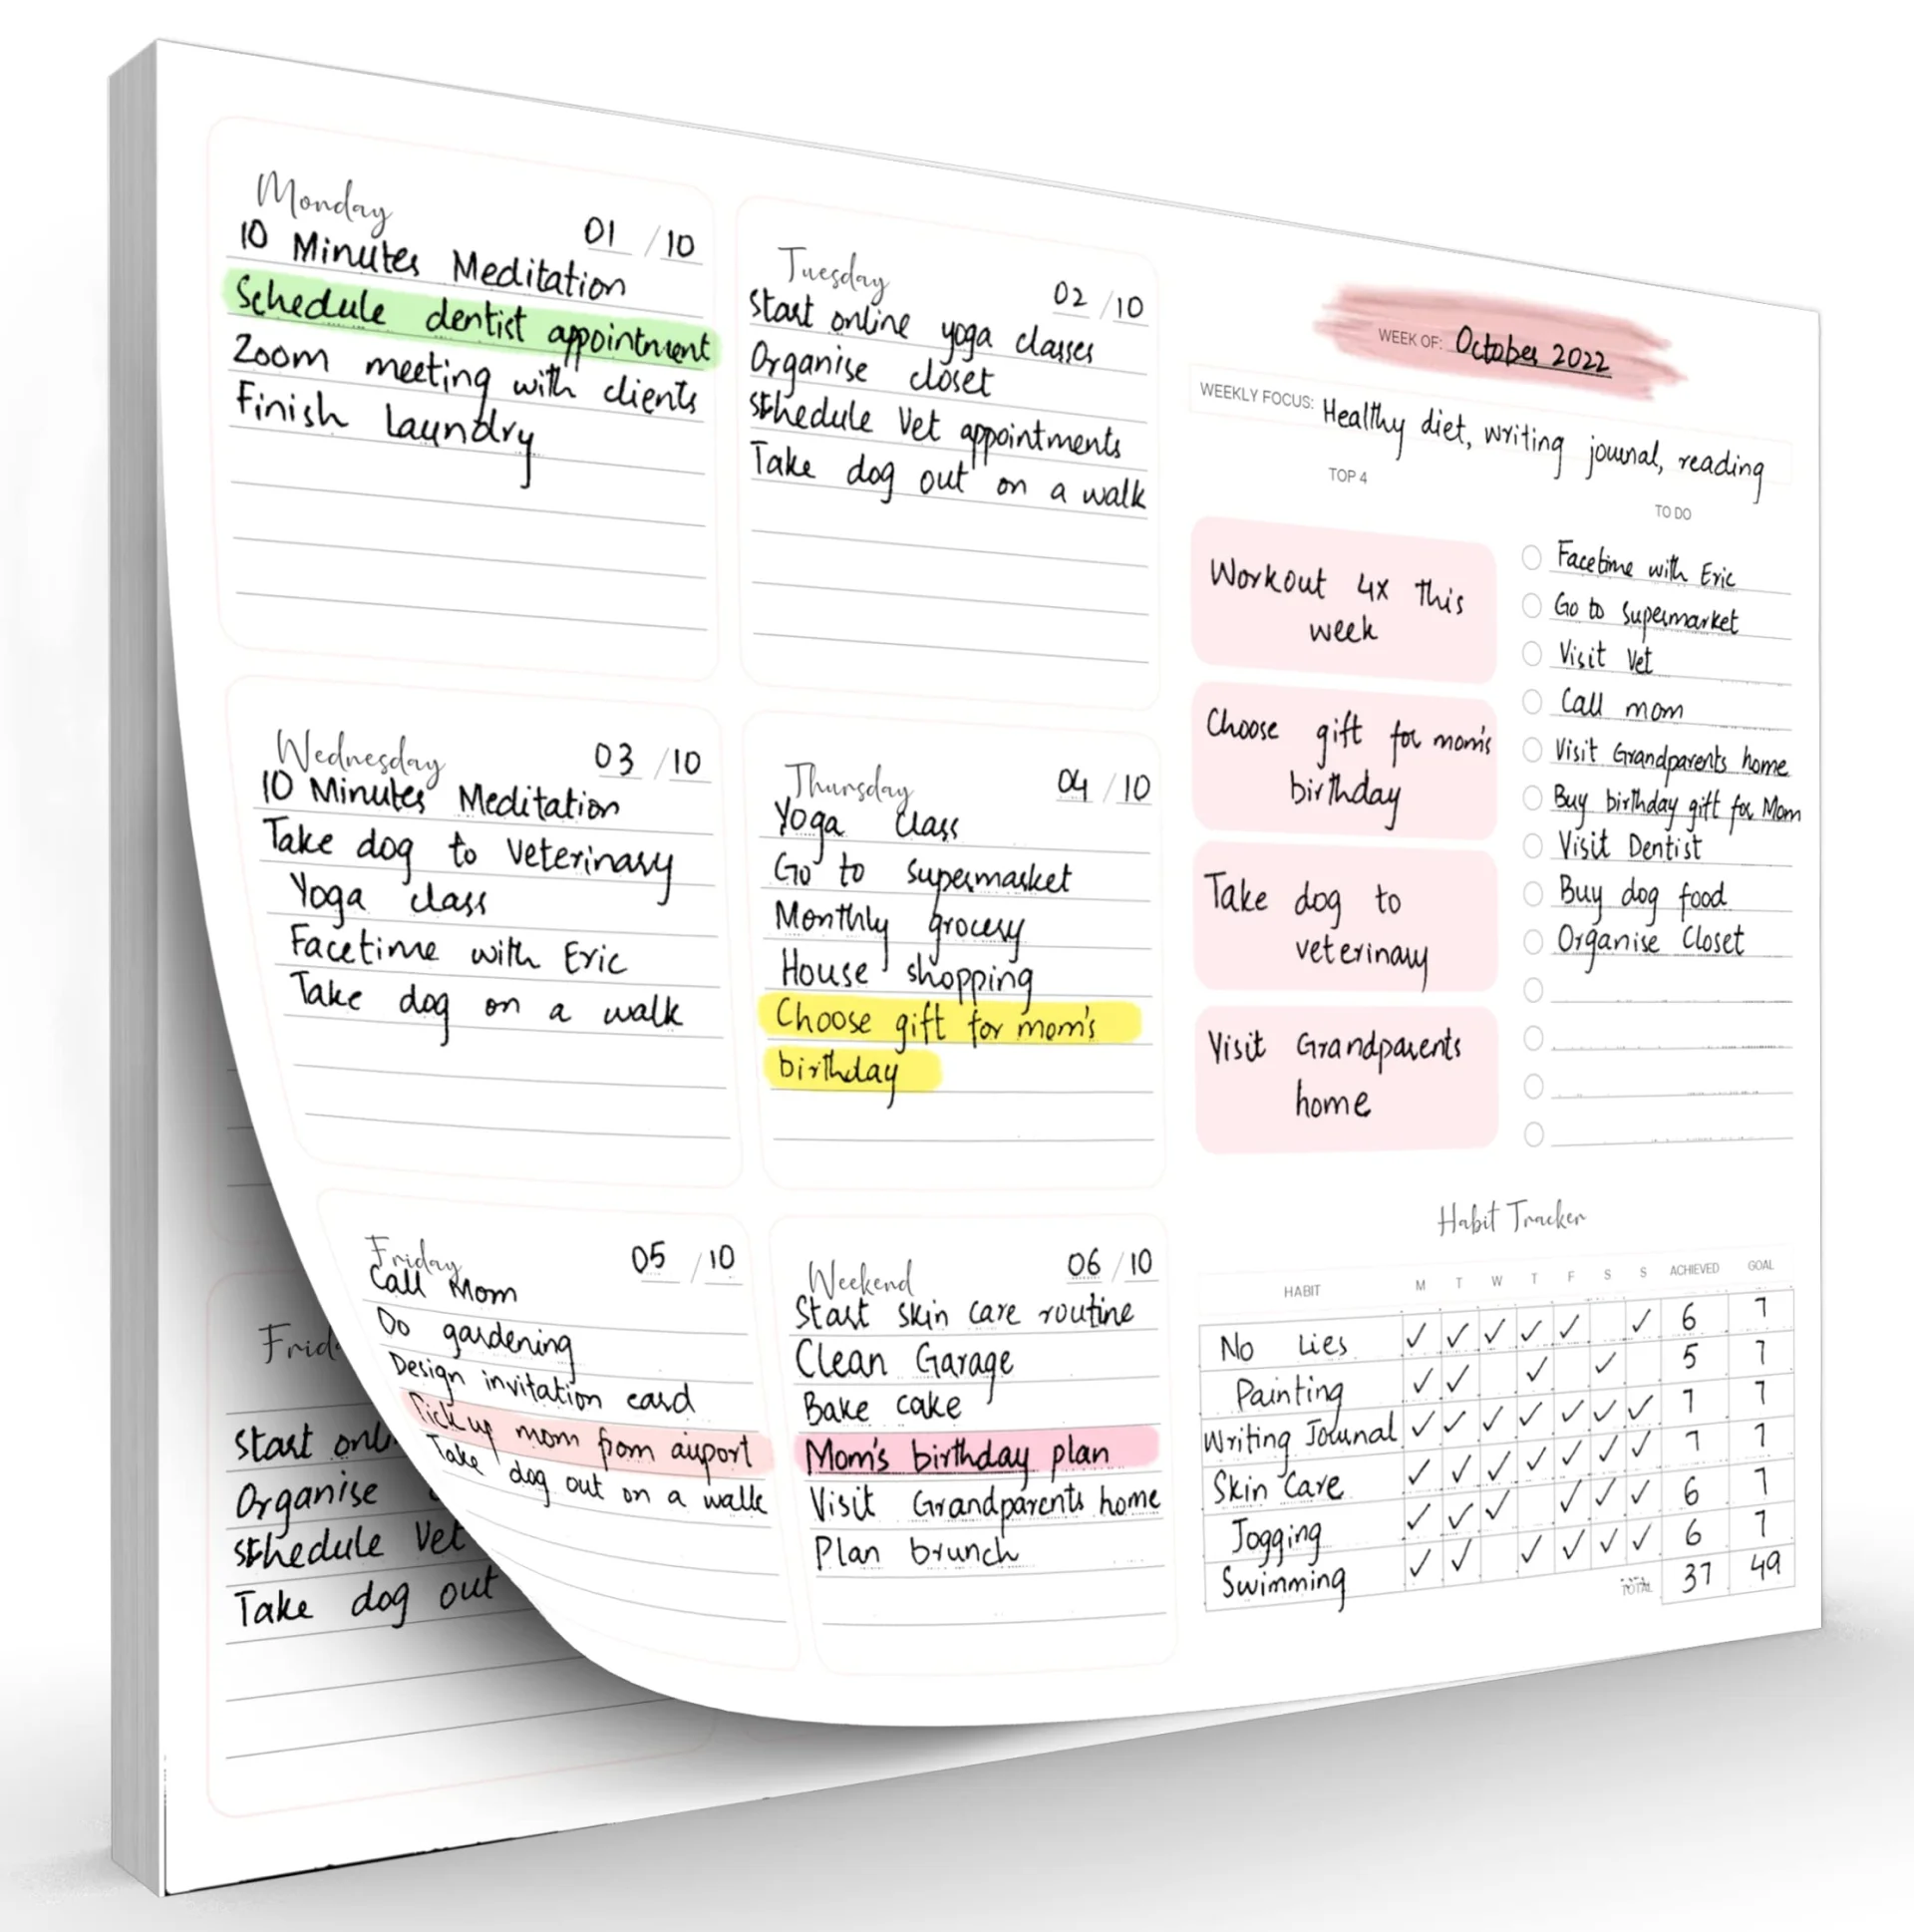 Monday 01 / 10
10 Minutes Meditation
Schedule dentist appointment
Zoom meeting with clients
Finish Laundry
Tuesday 02 / 10
Start online yoga classes
Organise closet
Schedule Vet appointments
Take dog out on a walk
Wednesday 03 / 10
10 Minutes Meditation
Take dog to Veterinary
Yoga class
Facetime with Eric
Take dog on a walk
Thursday 04 / 10
Yoga class
Go to Supermarket
Monthly grocery
House shopping
Choose gift for mom's
birthday
Friday 05 / 10
Call Mom
Do gardening
Design invitation card
Pick up mom from airport
Take dog out on a walk
Weekend 06 / 10
Start skin care routine
Clean Garage
Bake cake
Mom's birthday plan
Visit Grandparents home
Plan brunch
WEEK OF: October 2022
WEEKLY FOCUS: Healthy diet, writing journal, reading
TOP 4
Workout 4x this
week
Choose gift for mom's
birthday
Take dog to
veterinary
Visit Grandparents
home
TO DO
Facetime with Eric
Go to Supermarket
Visit Vet
Call mom
Visit Grandparents home
Buy birthday gift for Mom
Visit Dentist
Buy dog food
Organise Closet
Habit Tracker
HABIT M T W T F S S ACHIEVED GOAL
No Lies ✓ ✓ ✓ ✓ ✓ ✓ 6 7
Painting ✓ ✓ ✓ ✓ 5 7
Writing Journal ✓ ✓ ✓ ✓ ✓ ✓ ✓ 7 7
Skin Care ✓ ✓ ✓ ✓ ✓ ✓ ✓ 7 7
Jogging ✓ ✓ ✓ ✓ ✓ ✓ 6 7
Swimming ✓ ✓ ✓ ✓ ✓ ✓ 6 7
TOTAL 37 49
Start
Organise
Schedule Vet
Take dog out